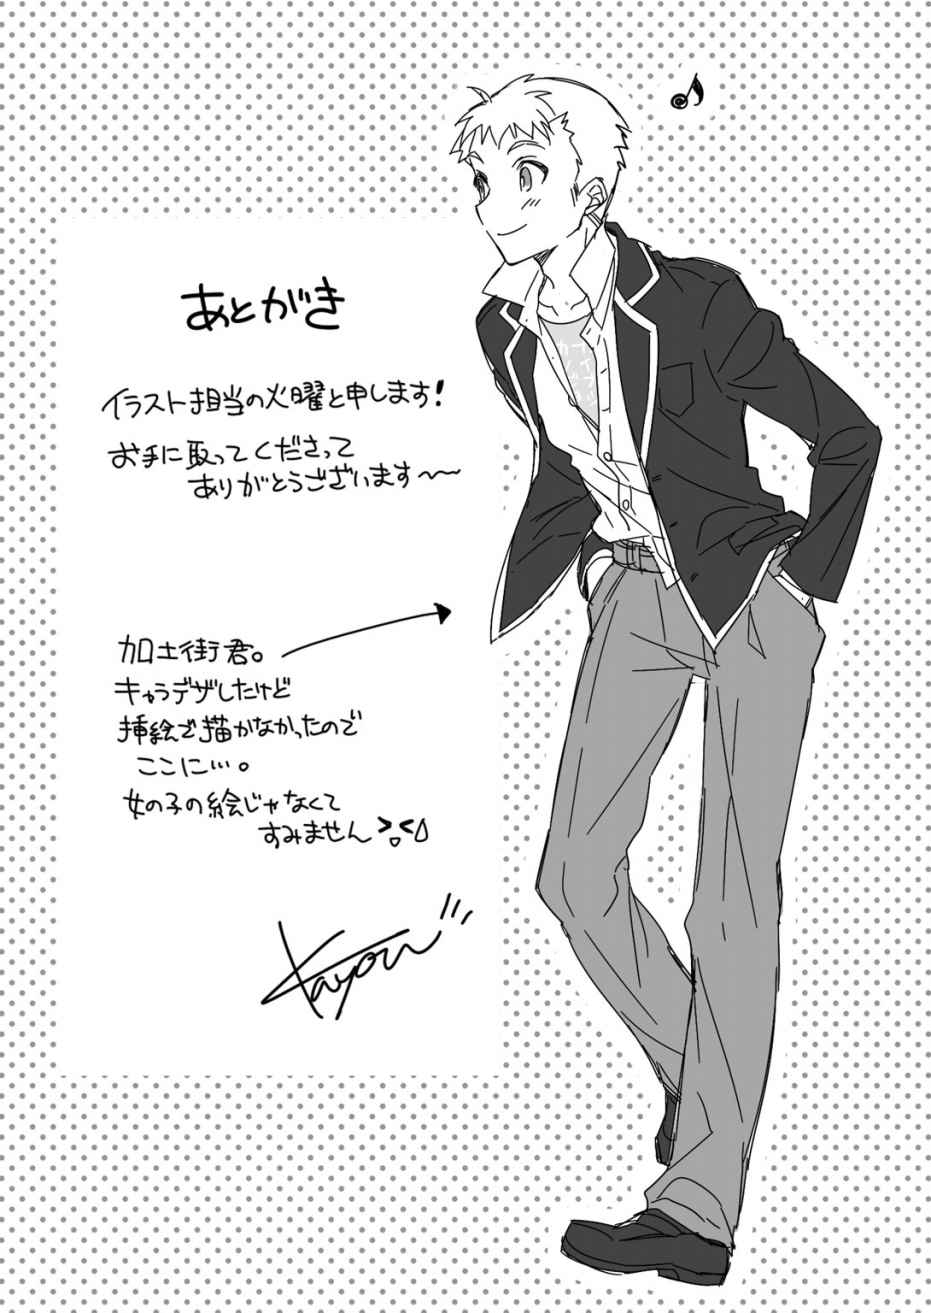 あとがき
イラスト担当の火曜と申します!
お手に取ってくださって
ありがとうございます〜
加土街君。
キャラデザしたけど
挿絵で描かなかったので
ここに…。
女の子の絵じゃなくて
すみません
Kayou